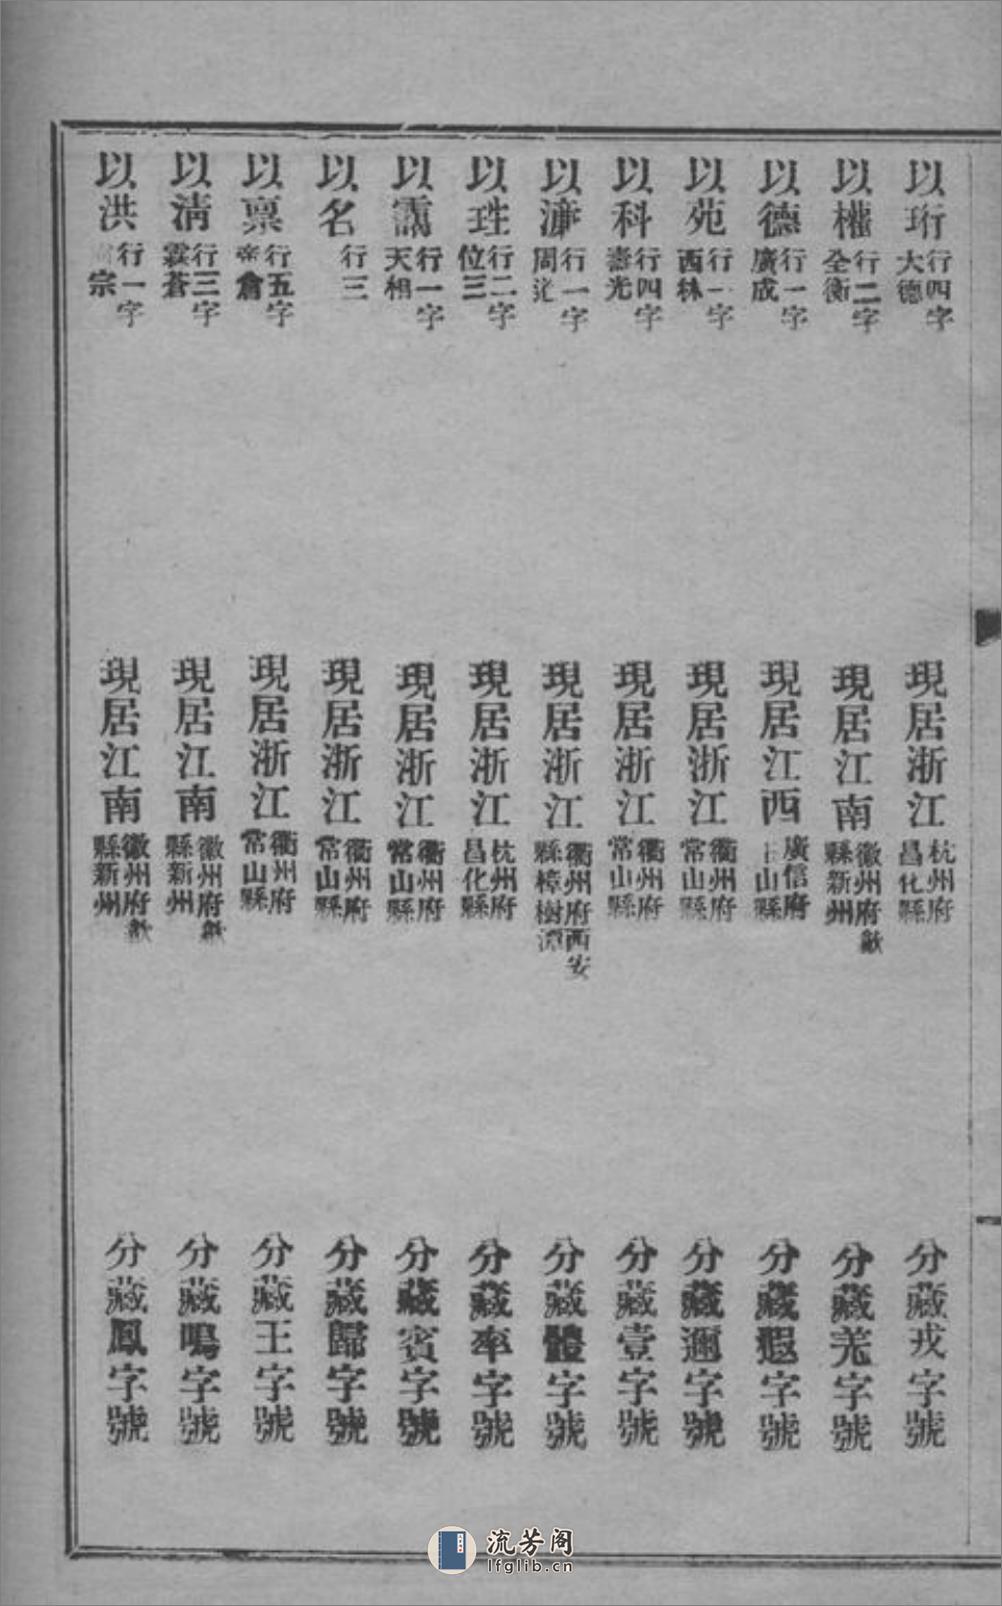 以珩行四字大德 現居浙江杭州府昌化縣 分藏戎字號
以權行二字全衡 現居江南徽州府歙縣新州 分藏羌字號
以德行一字廣成 現居江西廣信府山縣 分藏遐字號
以苑行一字西林 現居浙江衢州府常山縣 分藏邇字號
以科行四字壽光 現居浙江衢州府常山縣 分藏壹字號
以濂行一字周 現居浙江衢州府西安縣樟樹潭 分藏體字號
以珄行二字位三 現居浙江杭州府昌化縣 分藏率字號
以霱行一字天相 現居浙江衢州府常山縣 分藏賓字號
以名行三 現居浙江衢州府常山縣 分藏歸字號
以稟行五字帝倉 現居浙江衢州府常山縣 分藏王字號
以淸行三字蒼 現居江南徽州府歙縣新州 分藏鳴字號
以洪行一字宗 現居江南徽州府歙縣新州 分藏鳳字號
流芳阁
lfglib.cn